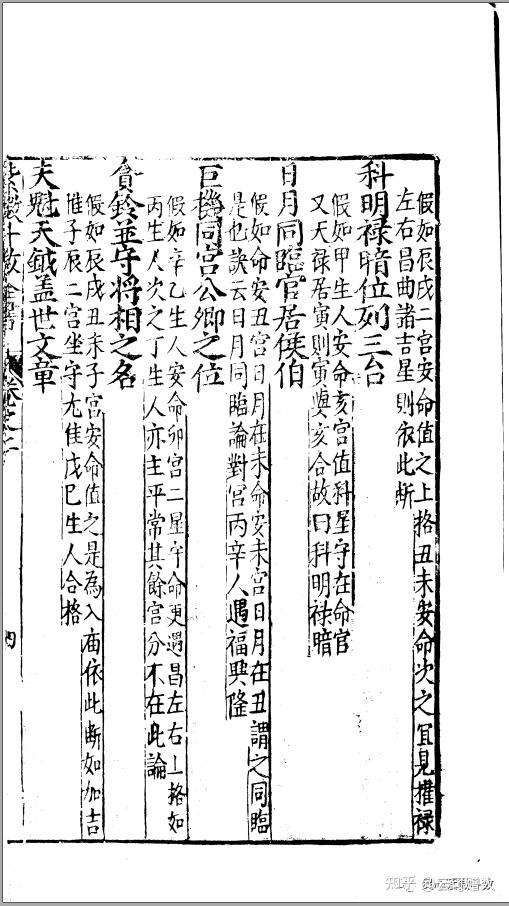 假如辰戌二宮安命值之上格丑未安命次之宜見權祿
左右昌曲諸吉星則依此斷
科明祿暗位列三台
假如甲生人安命亥宮值科星守在命宮
又天祿居寅則寅與亥合故曰科明祿暗
日月同臨官居侯伯
假如命安丑宮日月在未命安未宮日月在丑謂之同臨
是也訣云日月同臨論對宮丙辛人遇福興隆
巨機同宮公卿之位
假如辛乙生人安命卯宮二星守命更遇昌左右上格如
丙生人次之丁生人亦主平常其餘宮分不在此論
貪鈴並守將相之名
假如辰戌丑未子宮安命值之是為入庙依此斷如加吉
惟子辰二宮坐守尤佳戊巳生人合格
天魁天鉞盖世文章
紫微斗数全書 卷之二
四
知乎